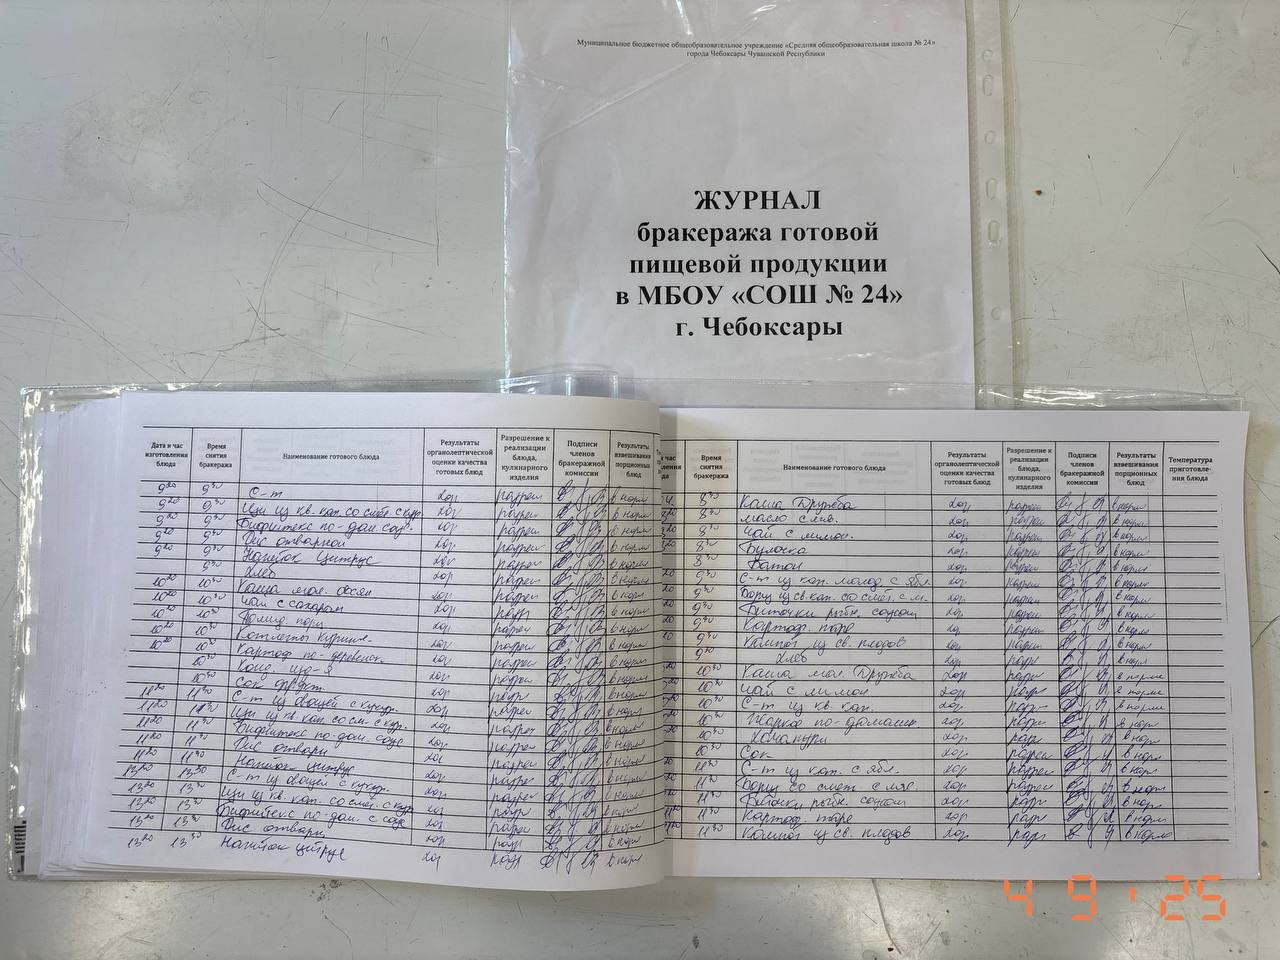 Муниципальное бюджетное общеобразовательное учреждение «Средняя общеобразовательная школа № 24»
города Чебоксары Чувашской Республики
ЖУРНАЛ
бракеража готовой
пищевой продукции
в МБОУ «СОШ № 24»
г. Чебоксары
Дата и час изготовления блюда Время снятия бракеража Наименование готового блюда Результаты органолептической оценки качества готовых блюд Разрешение к реализации блюда, кулинарного изделия Подписи членов бракеражной комиссии Результаты взвешивания порционных блюд
9²⁰ 9³⁰ С-т хор разреш в норм
9²⁰ 9³⁰ Щи из кв. кап. со смет. с кур. хор разреш в норм
9²⁰ 9³⁰ Бифштекс по-дом. соус хор разреш в норм
9²⁰ 9³⁰ Рис отварной хор разреш в норм
9²⁰ 9³⁰ Напиток Цитрус хор разреш в норм
9³⁰ Хлеб хор разреш в норм
10²⁰ 10³⁰ Каша мол. овсян хор разреш в норм
10²⁰ 10³⁰ Чай с сахаром хор разреш в норм
10²⁰ 10³⁰ хор разреш в норм
10²⁰ 10³⁰ Котлеты курин. хор разреш в норм
10²⁰ 10³⁰ Картоф по-деревенск. хор разреш в норм
10³⁰ хор разреш в норм
10³⁰ Сок фрукт. хор разреш в норм
11²⁰ 11³⁰ С-т из овощей с кукур. хор разреш в норм
11²⁰ 11³⁰ Щи из кв. кап. со см. с кур. хор разреш в норм
11²⁰ 11³⁰ Бифштекс по-дом. соус хор разреш в норм
11²⁰ 11³⁰ Рис отварн хор разреш в норм
11²⁰ 11³⁰ Напиток цитрус хор разреш в норм
13²⁰ 13³⁰ С-т из овощей с кукур. хор разреш в норм
13²⁰ 13³⁰ Щи из кв. кап. со смет. с кур хор разреш в норм
13²⁰ 13³⁰ Бифштекс по-дом. с соус хор разреш в норм
13²⁰ 13³⁰ Рис отварн хор разреш в норм
13²⁰ 13³⁰ Напиток цитрус хор разр в норм
Время снятия бракеража Наименование готового блюда Результаты органолептической оценки качества готовых блюд Разрешение к реализации блюда, кулинарного изделия Подписи членов бракеражной комиссии Результаты взвешивания порционных блюд Температура приготовления блюда
8³⁰ Каша Дружба хор разреш в норм
8³⁰ масло слив. хор разреш в норм
8³⁰ чай с лимон. хор разреш в норм
8³⁰ Булочка хор разреш в норм
8³⁰ Батон хор разреш в норм
9³⁰ С-т из кап. молод. с ябл. хор разреш в норм
9³⁰ Борщ из св кап. со смет. с м. хор разреш в норм
9³⁰ Биточки рыбн. соусом хор разреш в норм
9³⁰ Картоф. пюре хор разреш в норм
9³⁰ Компот из св. плодов хор разреш в норм
9³⁰ хлеб хор разреш в норм
10³⁰ Каша мол. Дружба хор разр в норм
10³⁰ Чай с лимон хор разр в норм
10³⁰ С-т из кв. кап. хор разр в норм
10³⁰ Жаркое по-домашн хор разр в норм
10³⁰ Хачапури хор разр в норм
10³⁰ Сок хор разреш в норм
11³⁰ С-т из кап. с ябл. хор разреш в норм
11³⁰ Борщ со смет. с мяс. хор разреш в норм
11³⁰ Биточки рыбн. соусом хор разр в норм
11³⁰ Картоф. пюре хор разр в норм
11³⁰ Компот из св. плодов хор разр в норм
4 9 '25